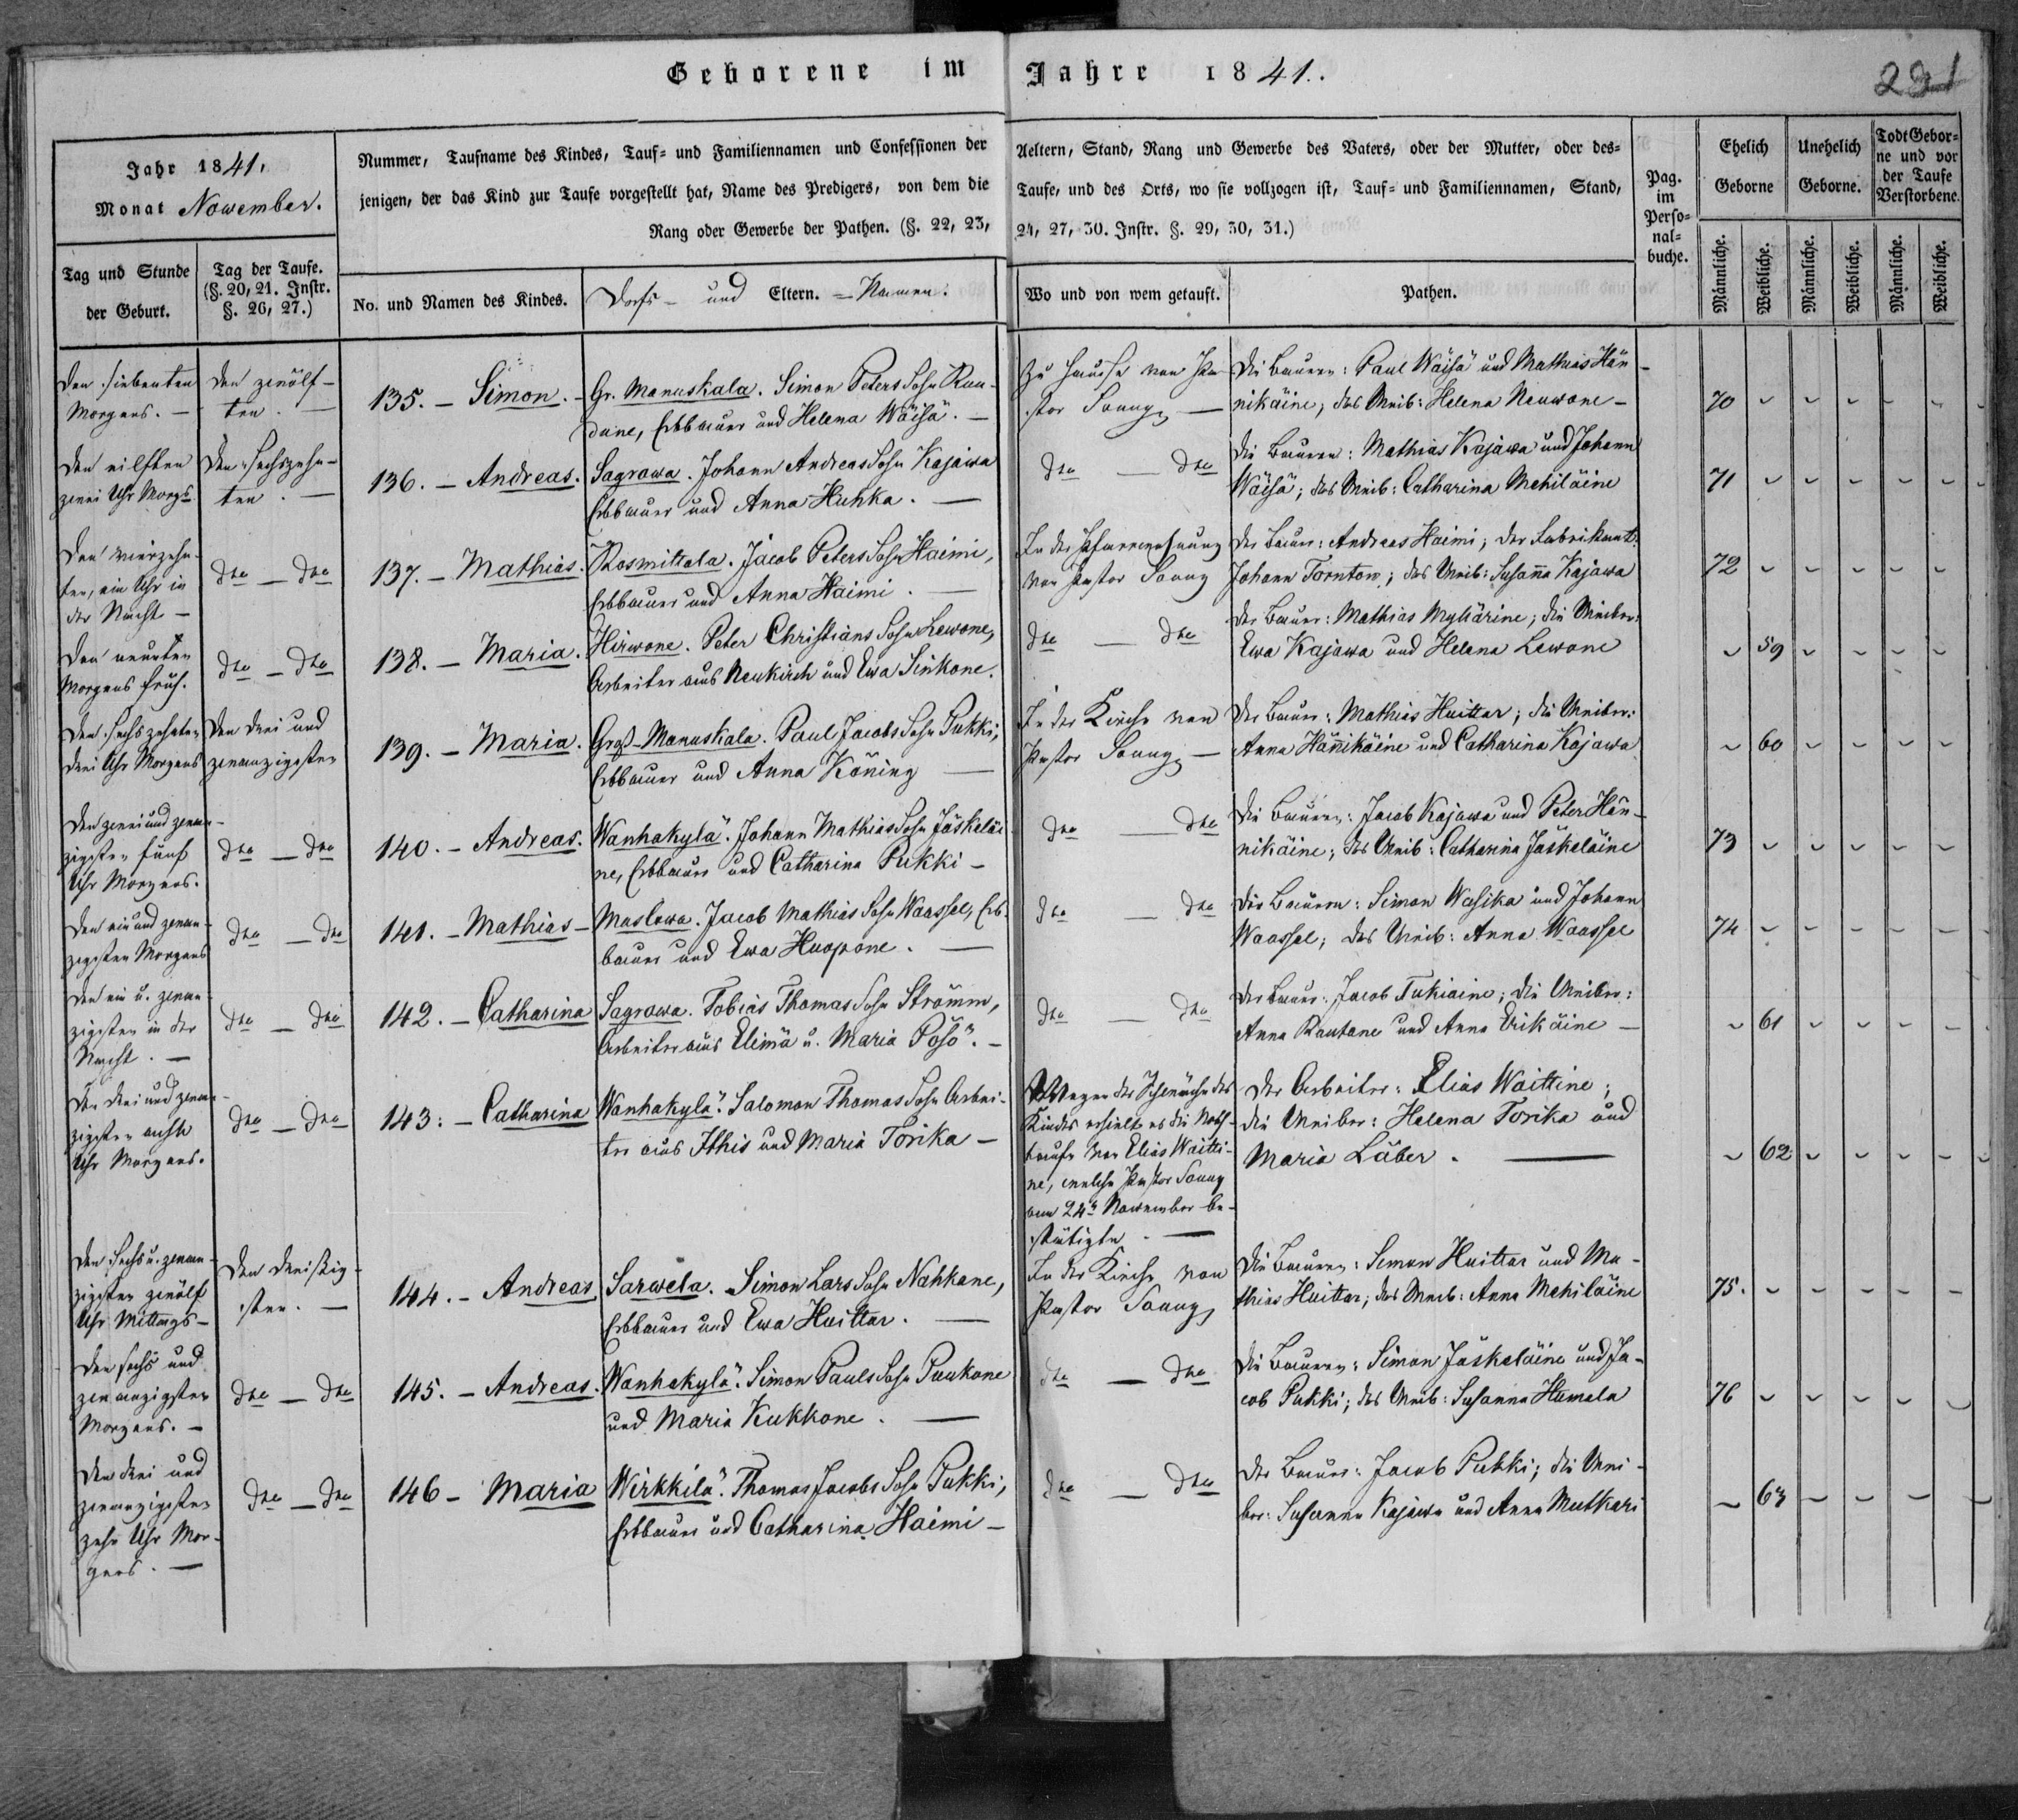 Geborene im Jahre 1841.
231
Jahr 1841,
Monat November.
Nummer, Taufname des Kindes, Tauf= und Familiennamen und Confessionen der Aeltern, Stand, Rang und Gewerbe des Vaters, oder der Mutter, oder des=
jenigen, der das Kind zur Taufe vorgestellt hat, Name des Predigers, von dem die Taufe, und des Orts, wo sie vollzogen ist, Tauf= und Familiennamen, Stand,
Rang oder Gewerbe der Pathen. (§. 22, 23, 24, 27, 30. Instr. §. 29, 30, 31.)
Pag.
im
Perso=
nal=
buche.
Ehelich
Geborne
Unehelich
Geborne.
Todt Gebor=
ne und vor
der Taufe
Verstorbene.
Tag und Stunde
der Geburt.
Tag der Taufe.
(§. 20, 21. Instr.
§. 26, 27.)
No. und Namen des Kindes.
Dorfs- und Eltern.-Namen.
Wo und von wem getauft.
Pathen.
Männliche.
Weibliche.
Männliche.
Weibliche.
Männliche.
Weibliche.
Den siebenten
Morgens. —
Den zwölf-
ten. —
135. - Simon. -
Gr. Manuskala. Simon Peters Sohn Rau-
dane, Erbbauer und Helena Wäisä. —
Zu Hause von Pa-
stor Sanng —
Die Bauern: Paul Wäisä und Mathias Hän-
nikäine; das Weib: Helena Neuwone -
70
Den eilften
zwei Uhr Morgs
Den sechszehn-
ten. —
136. - Andreas.
Sagrowa. Johann Andreas Sohn Kajawa
Erbbauer und Anna Huhka. —
dto — dto
Die Bauern: Mathias Kajawa und Johann
Wäisä; das Weib: Catharina Mehiläine
71
Den vierzehn-
ten, ein Uhr in
der Nacht —
dto — dto
137. - Mathias.
Rosmittala. Jacob Peters Sohn Haimi,
Erbbauer und Anna Haimi. —
In der Pfarrwohnung
von Pastor Sanng
Der Bauer: Andreas Haimi; der Fabrikant:
Johann Tornton; das Weib: Susaña Kajawa
72
Den neunten
Morgens früh.
dto — dto
138. - Maria.
Hirwone. Peter Christians Sohn Lewone,
Arbeiter aus Neukirch und Ewa Sinkone.
dto — dto
Der Bauer: Mathias Myllärine; die Weiber:
Ewa Kajawa und Helena Lewone
59
Den sechszehnten
drei Uhr Morgens
Den drei und
zwanzigsten
139. - Maria.
Groß-Manuskala. Paul Jacobs Sohn Pukki,
Erbbauer und Anna Köning —
In der Kirche von
Pastor Sanng —
Der Bauer: Mathias Huittar; die Weiber:
Anna Hänikäine und Catharina Kajawa
60
Den zwei und zwan-
zigsten fünf
Uhr Morgens.
dto — dto
140. - Andreas.
Wanhakylä. Johann Mathias Sohn Jäskeläi-
ne, Erbbauer und Catharina Pukki -
dto — dto
Die Bauern: Jacob Kajawa und Peter Hän-
nikäine; das Weib: Catharina Jäskeläine
73
Den ein und zwan-
zigsten Morgens
dto — dto
141. - Mathias -
Maslowa. Jacob Mathias Sohn Waassel, Erb-
bauer und Ewa Huopone. —
dto — dto
Die Bauern: Simon Wasika und Johann
Waassel; das Weib: Anna Waassel
74
Den ein u. zwan-
zigsten in der
Nacht. —
dto — dto
142. - Catharina
Sagrowa. Tobias Thomas Sohn Strömm,
Arbeiter aus Elimä u. Maria Pösö. -
dto — dto
Der Bauer: Jacob Tukiaine; die Weiber:
Anna Rautane und Anna Erikäine —
61
Den drei und zwan-
zigsten acht
Uhr Morgens.
dto — dto
143. - Catharina
Wanhakylä. Salomon Thomas Sohn Arbei-
ter aus Ithis und Maria Torika -
Wegen der Schwäche des
Kindes erhielt es die Noth-
taufe von Elias Waitti-
ne, welche Pastor Sanng
am 24n November be-
stätigte. —
Der Arbeiter: Elias Waittine;
die Weiber: Helena Torika und
Maria Läber. —
62
Den sechs u. zwan-
zigsten zwölf
Uhr Mittags -
Den dreißig-
sten. —
144. - Andreas
Sarwela. Simon Lars Sohn Nahkane,
Erbbauer und Ewa Huittar. —
In der Kirche von
Pastor Sanng
Die Bauern: Simon Huittar und Ma-
thias Huittar; das Weib: Anna Mehiläine
75.
Den sechs und
zwanzigsten
Morgens. -
dto — dto
145. - Andreas.
Wanhakylä. Simon Pauls Sohn Puukone
und Maria Kukkone. —
dto — dto
Die Bauern: Simon Jäskeläine und Ja-
cob Pukki; das Weib: Susanna Hamala
76
Den drei und
zwanzigsten
zehn Uhr Mor-
gens. —
dto — dto
146 - Maria
Wirkkilä. Thomas Jacobs Sohn Pukki,
Erbbauer und Catharina Haimi -
dto — dto
Der Bauer: Jacob Pukki; die Wei-
ber: Susanna Kajawa und Anna Mutkari
63